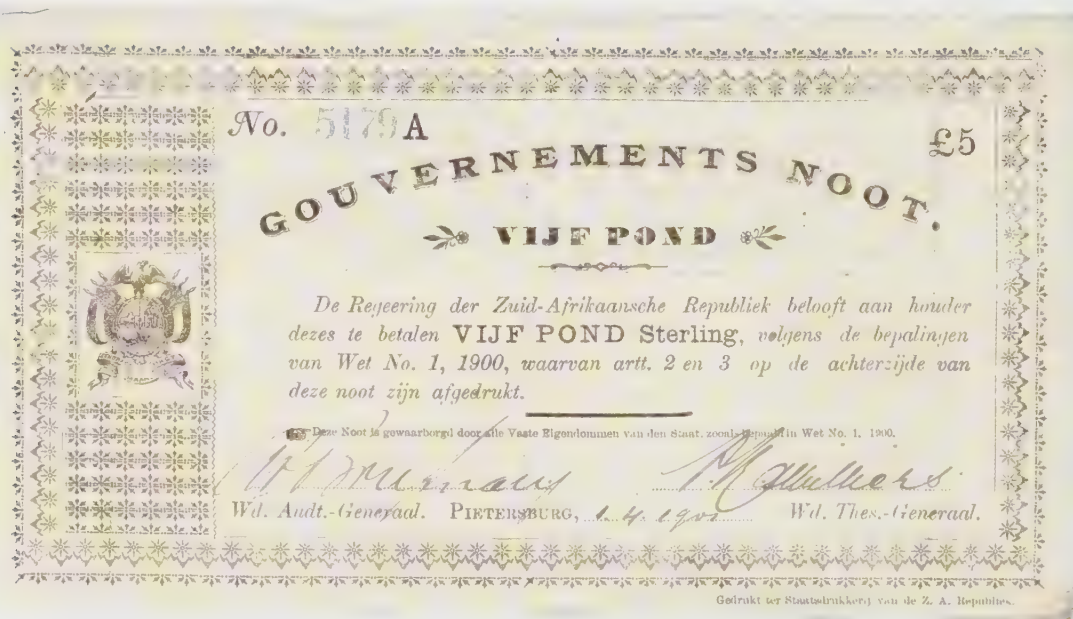 No. 5179 A
£5
GOUVERNEMENTS NOOT.
VIJF POND
De Regeering der Zuid-Afrikaansche Republiek belooft aan houder
dezes te betalen VIJF POND Sterling, volgens de bepalingen
van Wet No. 1, 1900, waarvan artt. 2 en 3 op de achterzijde van
deze noot zijn afgedrukt.
Deze Noot is gewaarborgd door alle Vaste Eigendommen van den Staat, zooals bepaald in Wet No. 1, 1900.
Wd. Audt.-Generaal. PIETERSBURG, 1.4.1901 Wd. Thes.-Generaal.
Gedrukt ter Staatsdrukkerij van de Z. A. Republiek.